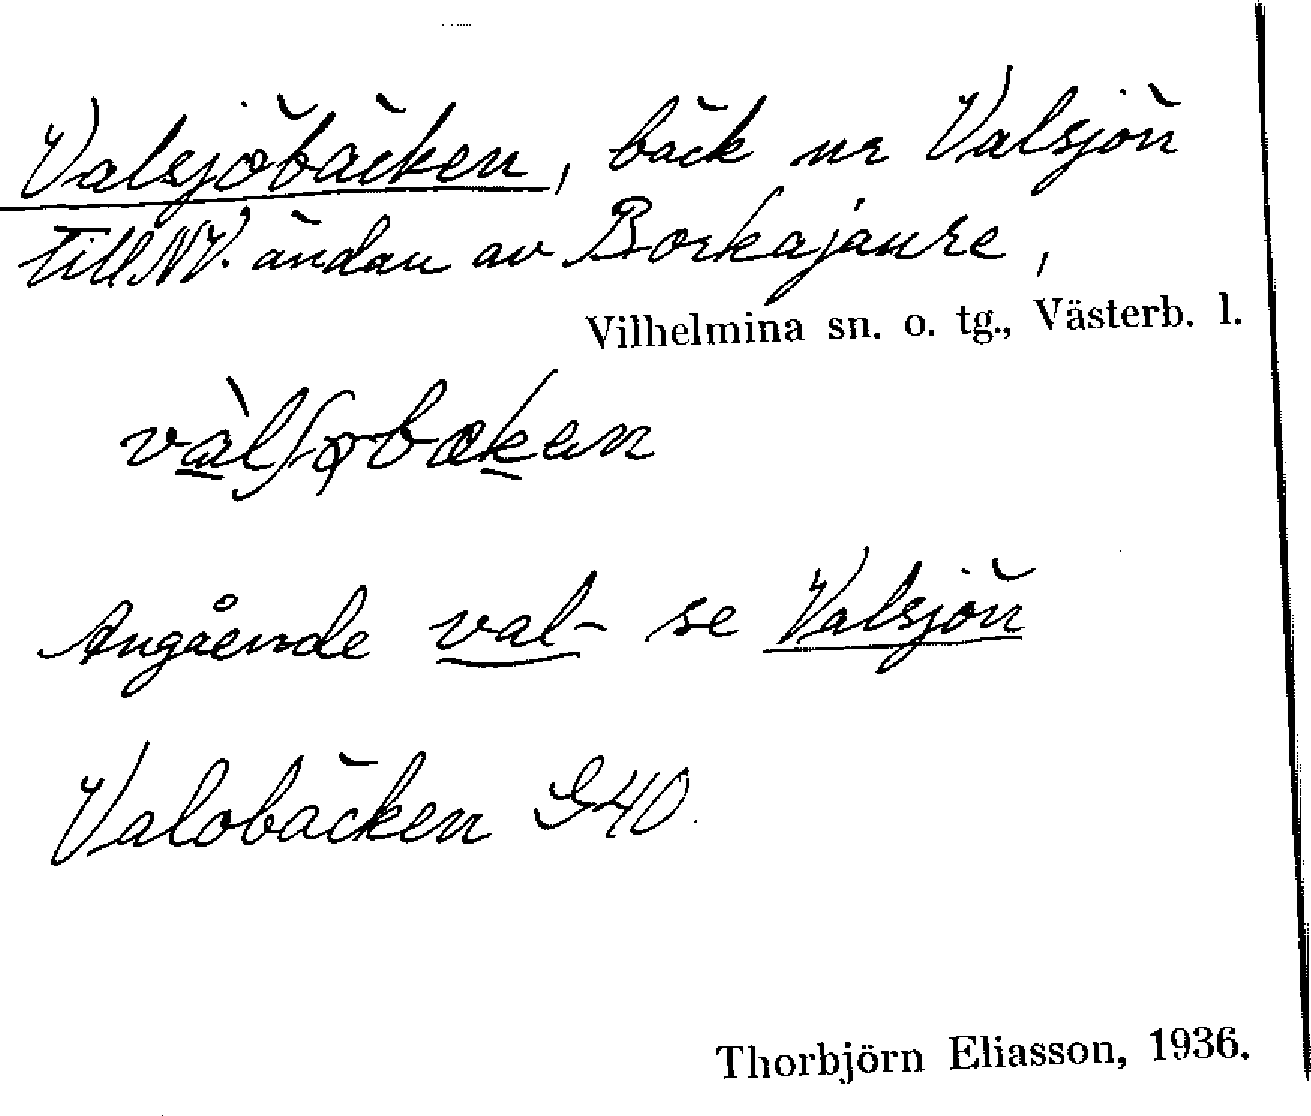 Valsjöbäcken, bäck ur Valsjön
till NV. ändan av Borkajaure,
Vilhelmina sn. o. tg., Västerb. l.
Angående val- se Valsjön
Valobäcken G40.
Thorbjörn Eliasson, 1936.